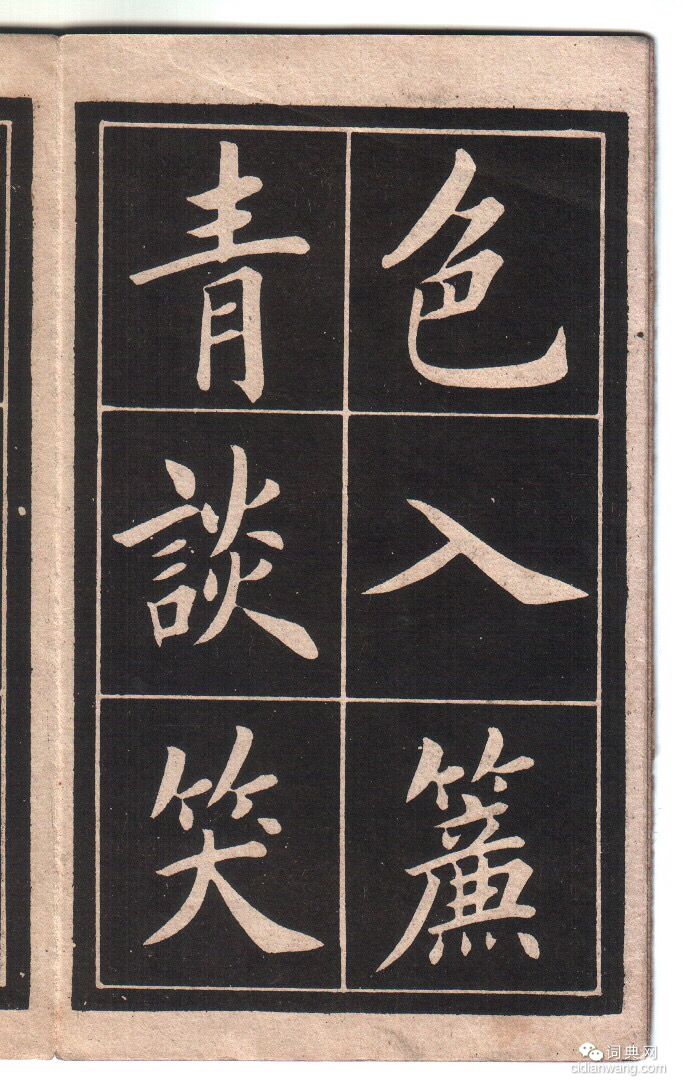 色入簾
青談笑
词典网
cidianwang.com